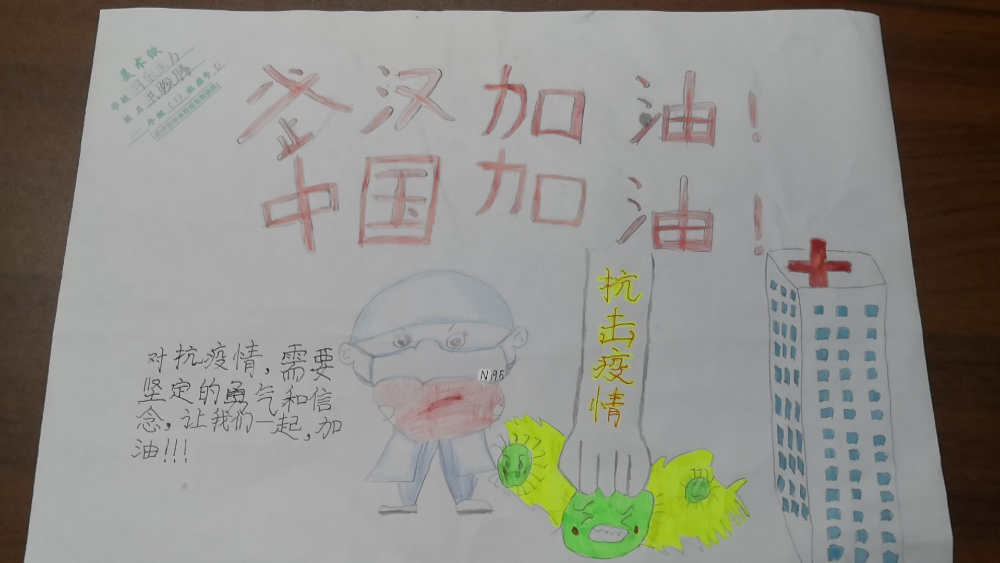 美术纸
武汉加油！
中国加油！
抗击疫情
对抗疫情，需要
坚定的勇气和信
念，让我们一起，加
油!!!
N95